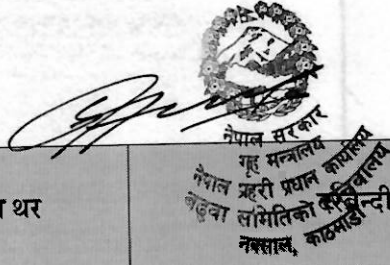 नेपाल सरकार
गृह मन्त्रालय
नेपाल प्रहरी प्रधान कार्यालय
बढुवा समितिको सचिवालय
नक्साल, काठमाडौं
थर